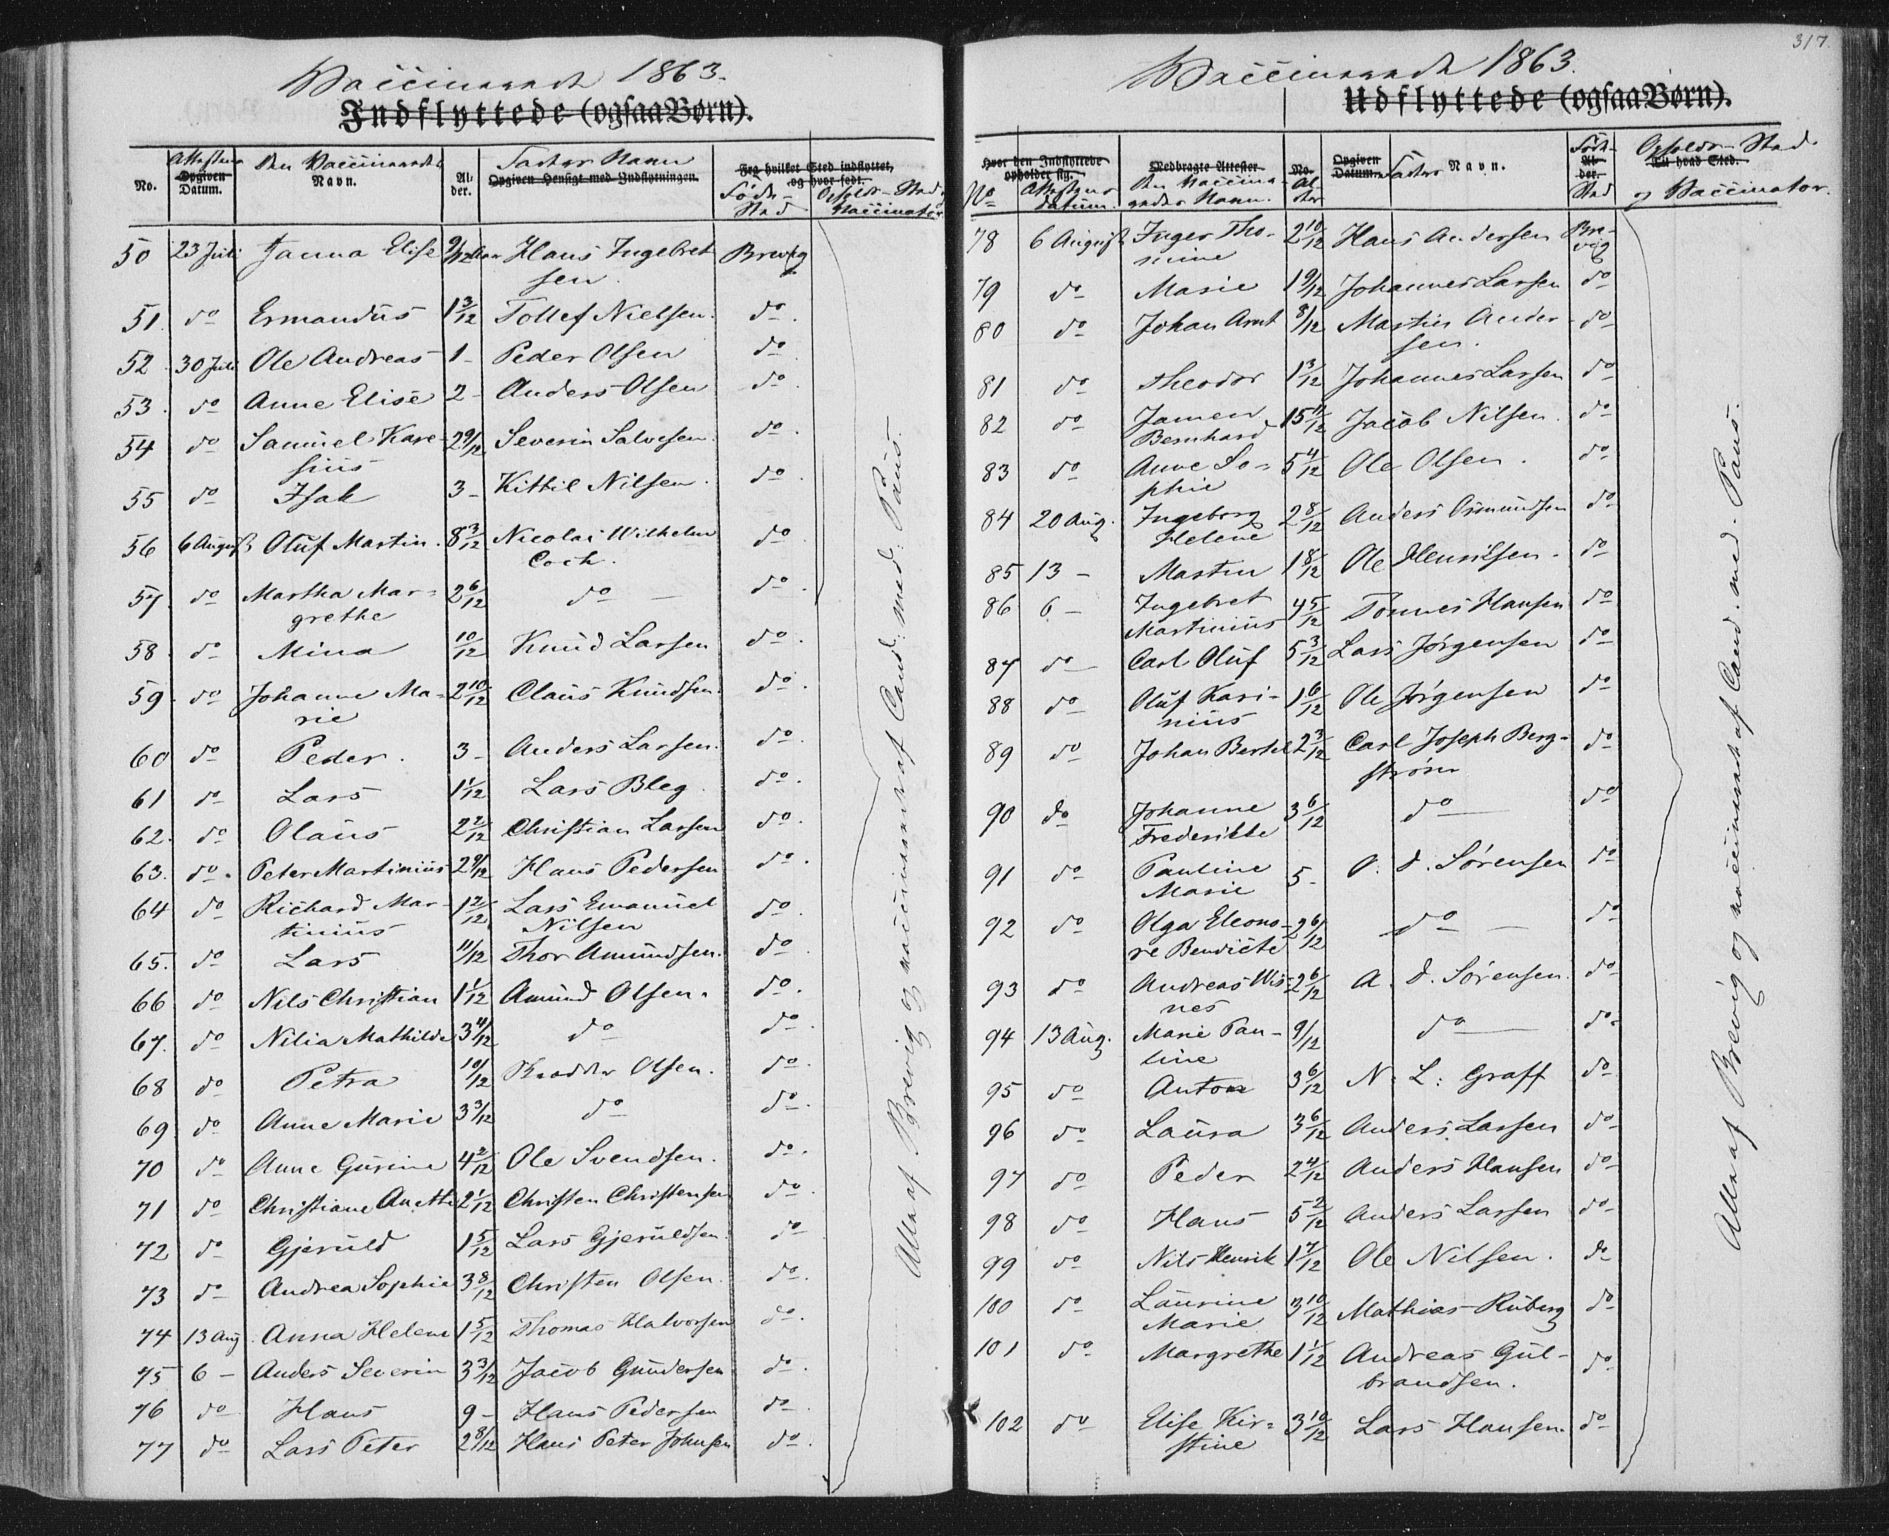 Vaccinerede 1863.
Indflyttede (ogsaa Børn).
No.
Attestens Opgiven Datum.
Den Vaccineredes Navn.
Alder.
Faders Navn
Opgiven Hensigt med Indflytningen.
Fra hvilket Sted indflyttet, og hvor født.
Føde-Sted
Opholds-Sted og Vaccinator
50 23 Juli Janna Elise 9/12 Aar Hans Ingebret Brevig
sen.
51. do Ermandus 1 3/12 Tollef Nielsen. do.
52 30 Juli Ole Andreas 1- Peder Olsen do.
53. do Anne Elise 2- Anders Olsen do.
54 do Samuel Kare- 2 9/12 Severin Salvesen. do.
sius
55 do Isak 3- Kittil Nilsen. do.
56 6 August Oluf Martin. 8 3/12 Nicolai Wilhelm do
Coch.
57. do Martha Mar- 2 6/12 do — do.
grethe
58. do Mina 10/12 Knud Larsen do.
59. do Johanne Ma- 2 10/12 Claus Knudsen. do.
rie
60 do Peder. 3- Anders Larsen. do.
61 do Lars 1 1/12 Lars Bleg. do.
62. do Olaus 2 2/12 Christian Larsen do.
63. do. Peter Martinius 2 9/12 Hans Pedersen do.
64 do Richard Mar- 1 2/12 Lars Emanuel do.
tinius Nilsen
65. do Lars 11/12 Thor Amundsen. do.
66 do Nils Christian 1 1/12 Amund Olsen. do.
67. do Nilia Mathilde 3 11/12 do do.
68 do Petra 10/12 Olsen. do.
69 do Anne Marie 3 3/12 do do.
70 do Anne Gurine 4 2/12 Ole Svendsen. do.
71 do Christiane Anette 2 1/12 Christen Christensen do.
72 do Gjeruld 1 5/12 Lars Gjeruldsen. do
73 do Andrea Sophie 3 8/12 Christen Olsen. do.
74 13 Aug. Anna Helene 1 5/12 Thomas Halvorsen do.
75 6 - Anders Severin 3 3/12 Jacob Gundersen do.
76 do Hans 9- Hans Pedersen do.
77 do Lars Peter 2 8/12 Hans Peter Johnsen do.
Alle af Brevig og vaccinerede af Cand. med. Paus.
317.
Vaccinerede 1863.
Udflyttede (ogsaa Børn).
Hvor den Indflyttede opholder sig.
No
Attestens datum.
Medbragte Attester
den Vaccineredes Navn.
No.
Alder
Opgiven Datum.
Faders Navn.
Føde-Sted
Alder.
Opholds-Sted
Til hvad Sted.
og Vaccinator.
78 6 August Inger Tho- 2 10/12 Hans Andersen Bre-
sine vig
79 do Marie 1 9/12 Johannes Larsen do
80 do Johan Arnt 8/12 Martin Ander- do
sen.
81 do Theodor 1 3/12 Johannes Larsen do
82 do Jamen 15 11/12 Jacob Nilsen. do
Bernhard
83 do Anne So- 5 4/12 Ole Olsen. do
phie
84 20 Aug. Ingeborg 2 8/12 Anders Osmundsen do
Helene
85 13 - Martin 1 8/12 Ole Henriksen. do
86 6 - Ingebret 4 5/12 Tønnes Hansen do
Martinius
87 do Carl Oluf 5 3/12 Lars Jørgensen do
88 do Oluf Kari- 1 6/12 Ole Jørgensen do
nius
89 do Johan Bertel 2 3/12 Carl Joseph Berg- do
strøm
90 do Johanne 3 6/12 do do
Frederikke
91 do Pauline 5- O. d. Sørensen do
Marie
92 do Olga Eleono- 2 6/12 do — do
re Bendicte
93 do Andreas Wis- 2 6/12 A. d. Sørensen. do
nes
94 13 Aug. Marie Pau- 9/12 do do.
line
95 do Anton 3 6/12 N. L. Graff do
96 do Laura 3 6/12 Anders Larsen do
97 do Peder 2 4/12 Anders Hansen do
98 do Hans 5 2/12 Anders Larsen do.
99 do Nils Henrik 1 7/12 Ole Nilsen. do
100 do Laurine 3 10/12 Mathias Ruberg do
Marie
101 do Margrethe 1 1/12 Andreas Gul- do
brandsen.
102 do Elise Kir- 3 10/12 Lars Hansen. do
stine
Alle af Brevig og vaccinerede af Cand. med. Paus.